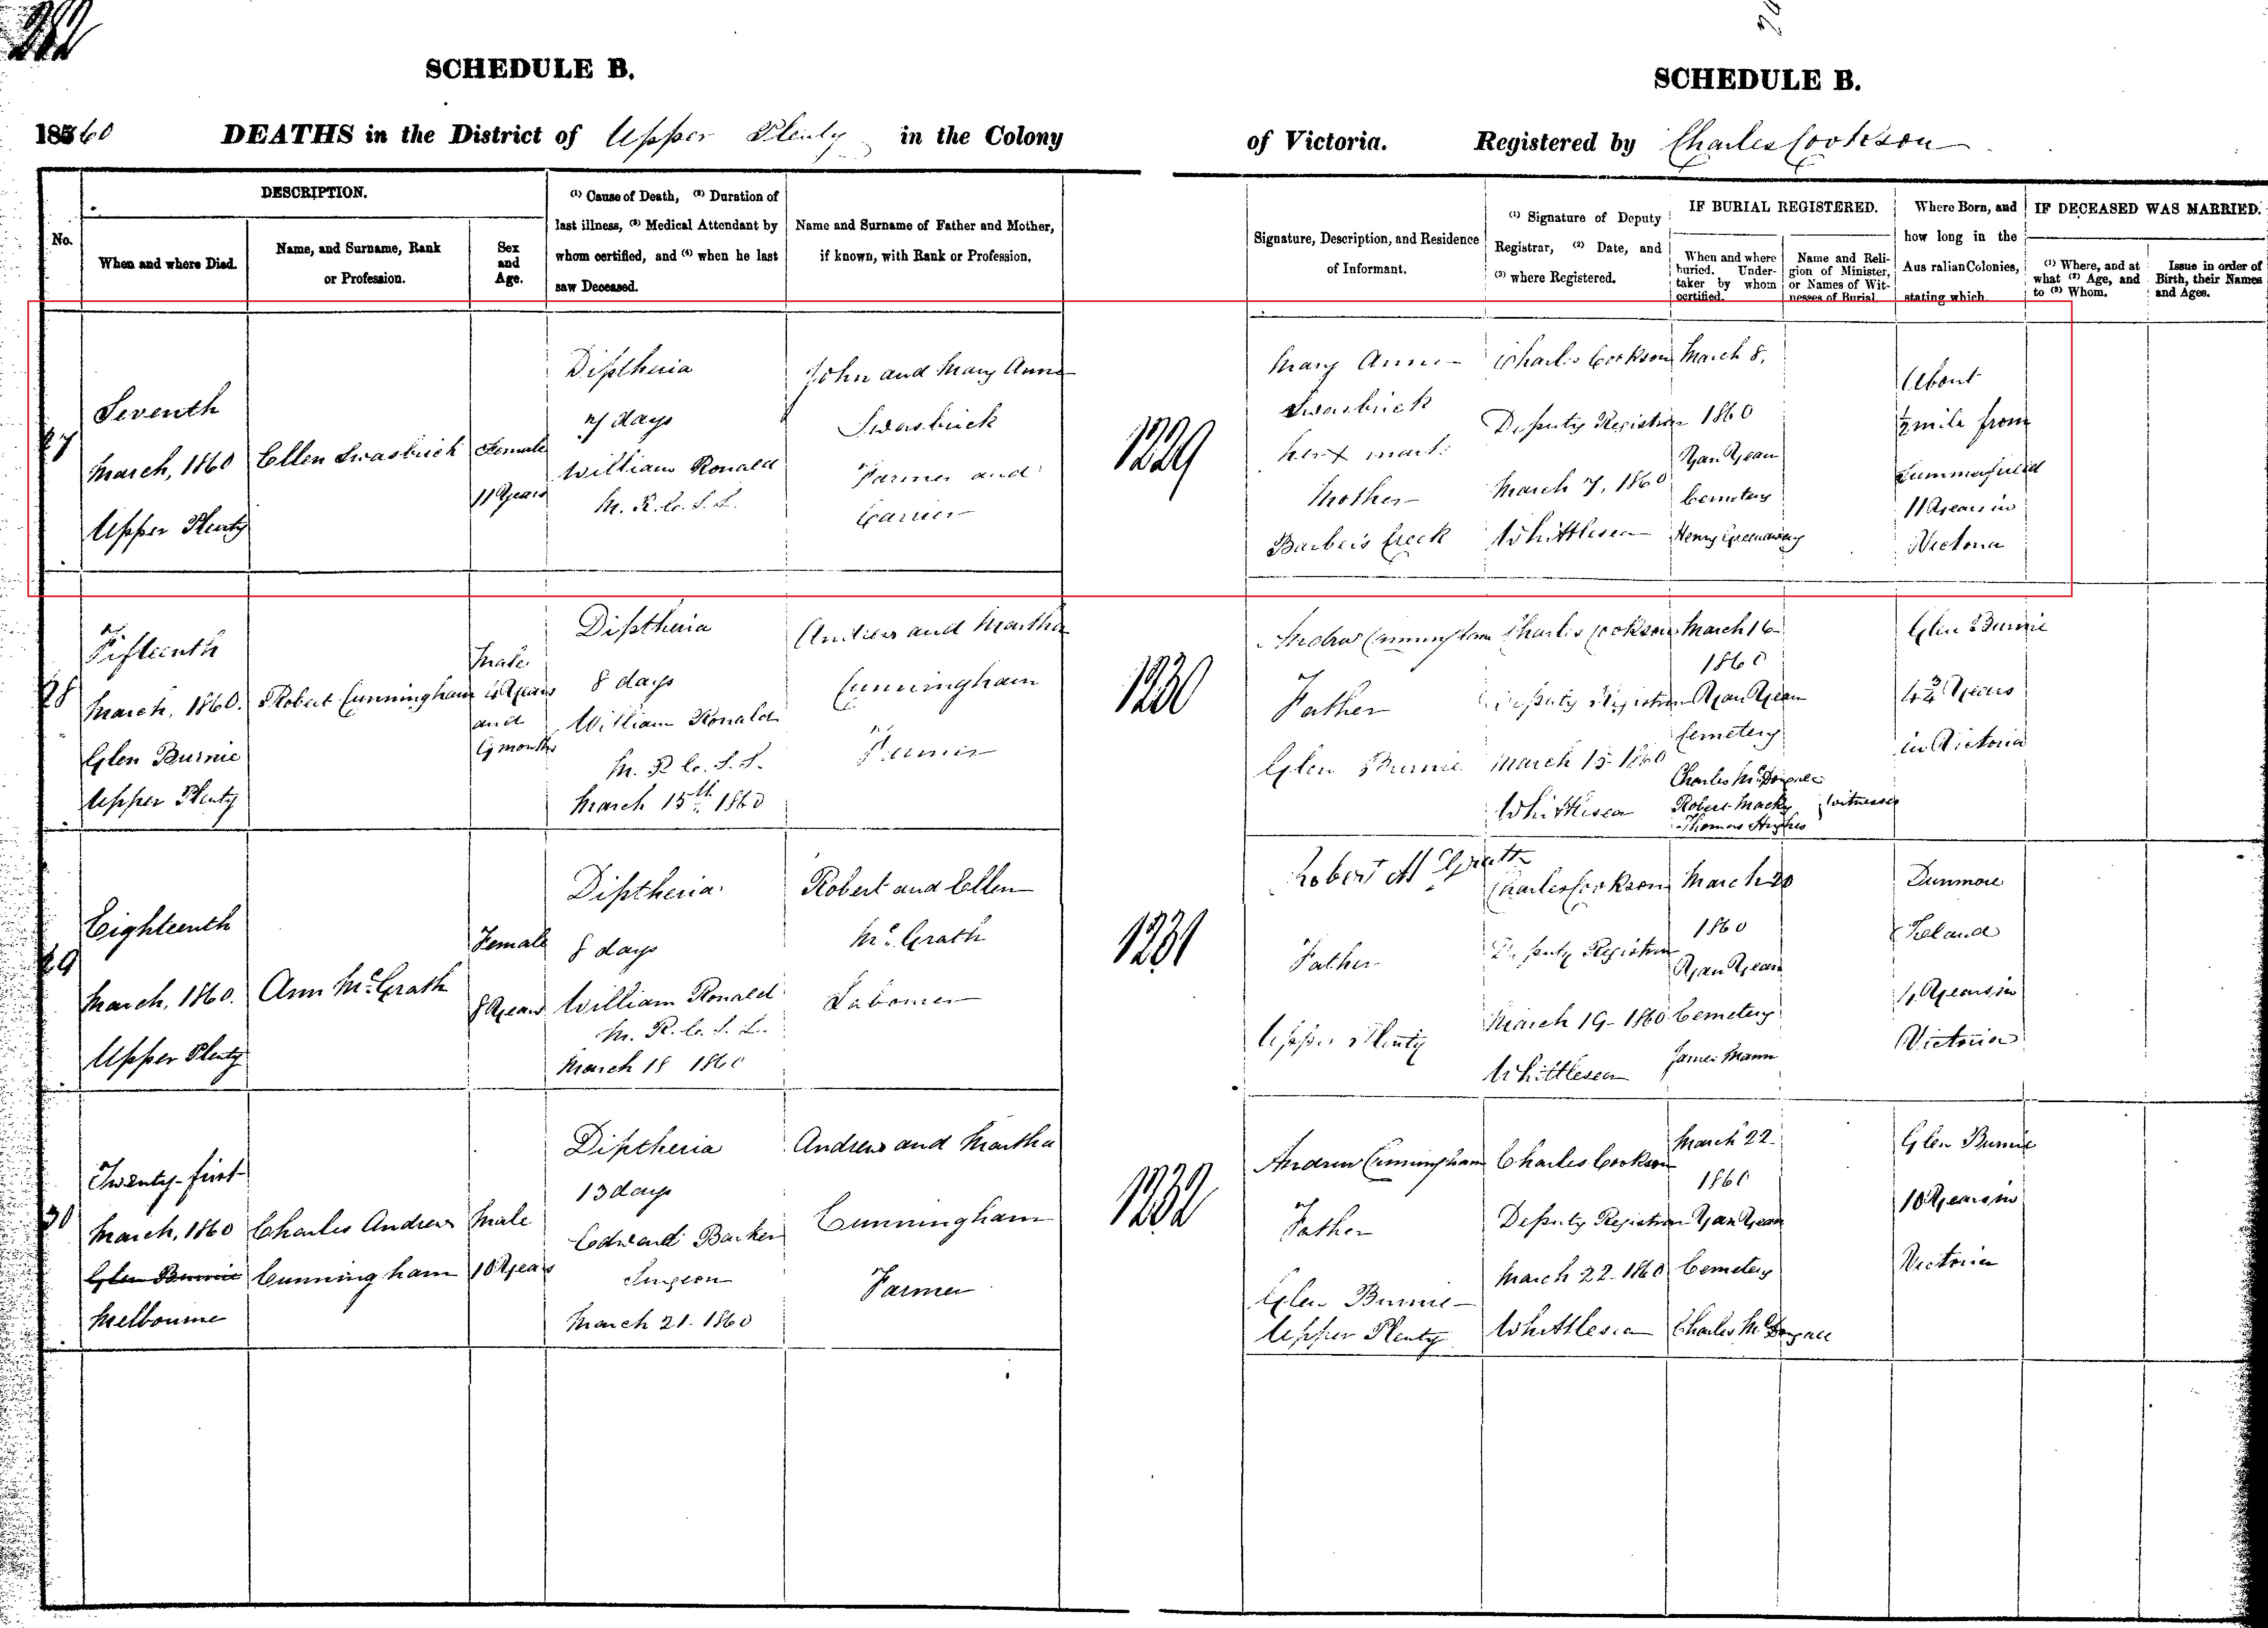 SCHEDULE B.
SCHEDULE B.
18560 DEATHS in the District of Upper Plenty in the Colony
of Victoria. Registered by Charles Cookson
No.
DESCRIPTION.
When and where Died.
Name, and Surname, Rank
or Profession.
Sex
and
Age.
(1) Cause of Death, (2) Duration of
last illness, (3) Medical Attendant by
whom certified, and (4) when he last
saw Deceased.
Name and Surname of Father and Mother,
if known, with Rank or Profession.
Signature, Description, and Residence
of Informant.
(1) Signature of Deputy
Registrar, (2) Date, and
(3) where Registered.
IF BURIAL REGISTERED.
When and where
buried. Under-
taker by whom
certified.
Name and Reli-
gion of Minister,
or Names of Wit-
nesses of Burial
Where Born, and
how long in the
Aus ralian Colonies,
stating which.
IF DECEASED WAS MARRIED.
(1) Where, and at
what (2) Age, and
to (3) Whom.
Issue in order of
Birth, their Names
and Ages.
27
Seventh
March, 1860
Upper Plenty
Ellen Swasbrick
Female
11 Years
Diptheria
7 days
William Ronald
M. R. C. S. L.
John and Mary Anne
Swasbrick
Farmer and
Carrier
1229
Mary Anne
Swasbrick
her X mark
Mother
Barbers Creek
Charles Cookson
Deputy Registrar
March 7, 1860
Whittlesea
March 8,
1860
Yan Yean
Cemetery
Henry Greenaway
About
½ mile from
11 Years in
Victoria
28
Fifteenth
March, 1860.
Glen Burnie
Upper Plenty
Robert Cunningham
Male
4 Years
and
9 months
Diptheria
8 days
William Ronald
M. R. C. S. L.
March 15th 1860
Andrew and Martha
Cunningham
Farmer
1230
Andrew Cunningham
Father
Glen Burnie
Charles Cookson
Deputy Registrar
March 15 1860
Whittlesea
March 16
1860
Yan Yean
Cemetery
Charles McDougall
Robert Macky
Thomas Hughes
witnesses
Glen Burnie
4¾ Years
in Victoria
29
Eighteenth
March, 1860.
Upper Plenty
Ann McGrath
Female
8 Years
Diptheria
8 days
William Ronald
M. R. C. S. L.
March 18 1860
Robert and Ellen
McGrath
Labourer
1231
Robert McGrath
Father
Upper Plenty
Charles Cookson
Deputy Registrar
March 19 - 1860
Whittlesea
March 20
1860
Yan Yean
Cemetery
James Mann
Dunmore
Ireland
Years in
Victoria
30
Twenty-first
March, 1860
Glen Burnie
Melbourne
Charles Andrew
Cunningham
Male
10 Years
Diptheria
13 days
Edward Barker
Surgeon
March 21. 1860
Andrew and Martha
Cunningham
Farmer
1232
Andrew Cunningham
Father
Glen Burnie
Upper Plenty
Charles Cookson
Deputy Registrar
March 22. 1860
Whittlesea
March 22
1860
Yan Yean
Cemetery
Charles McDougall
Glen Burnie
10 Years in
Victoria